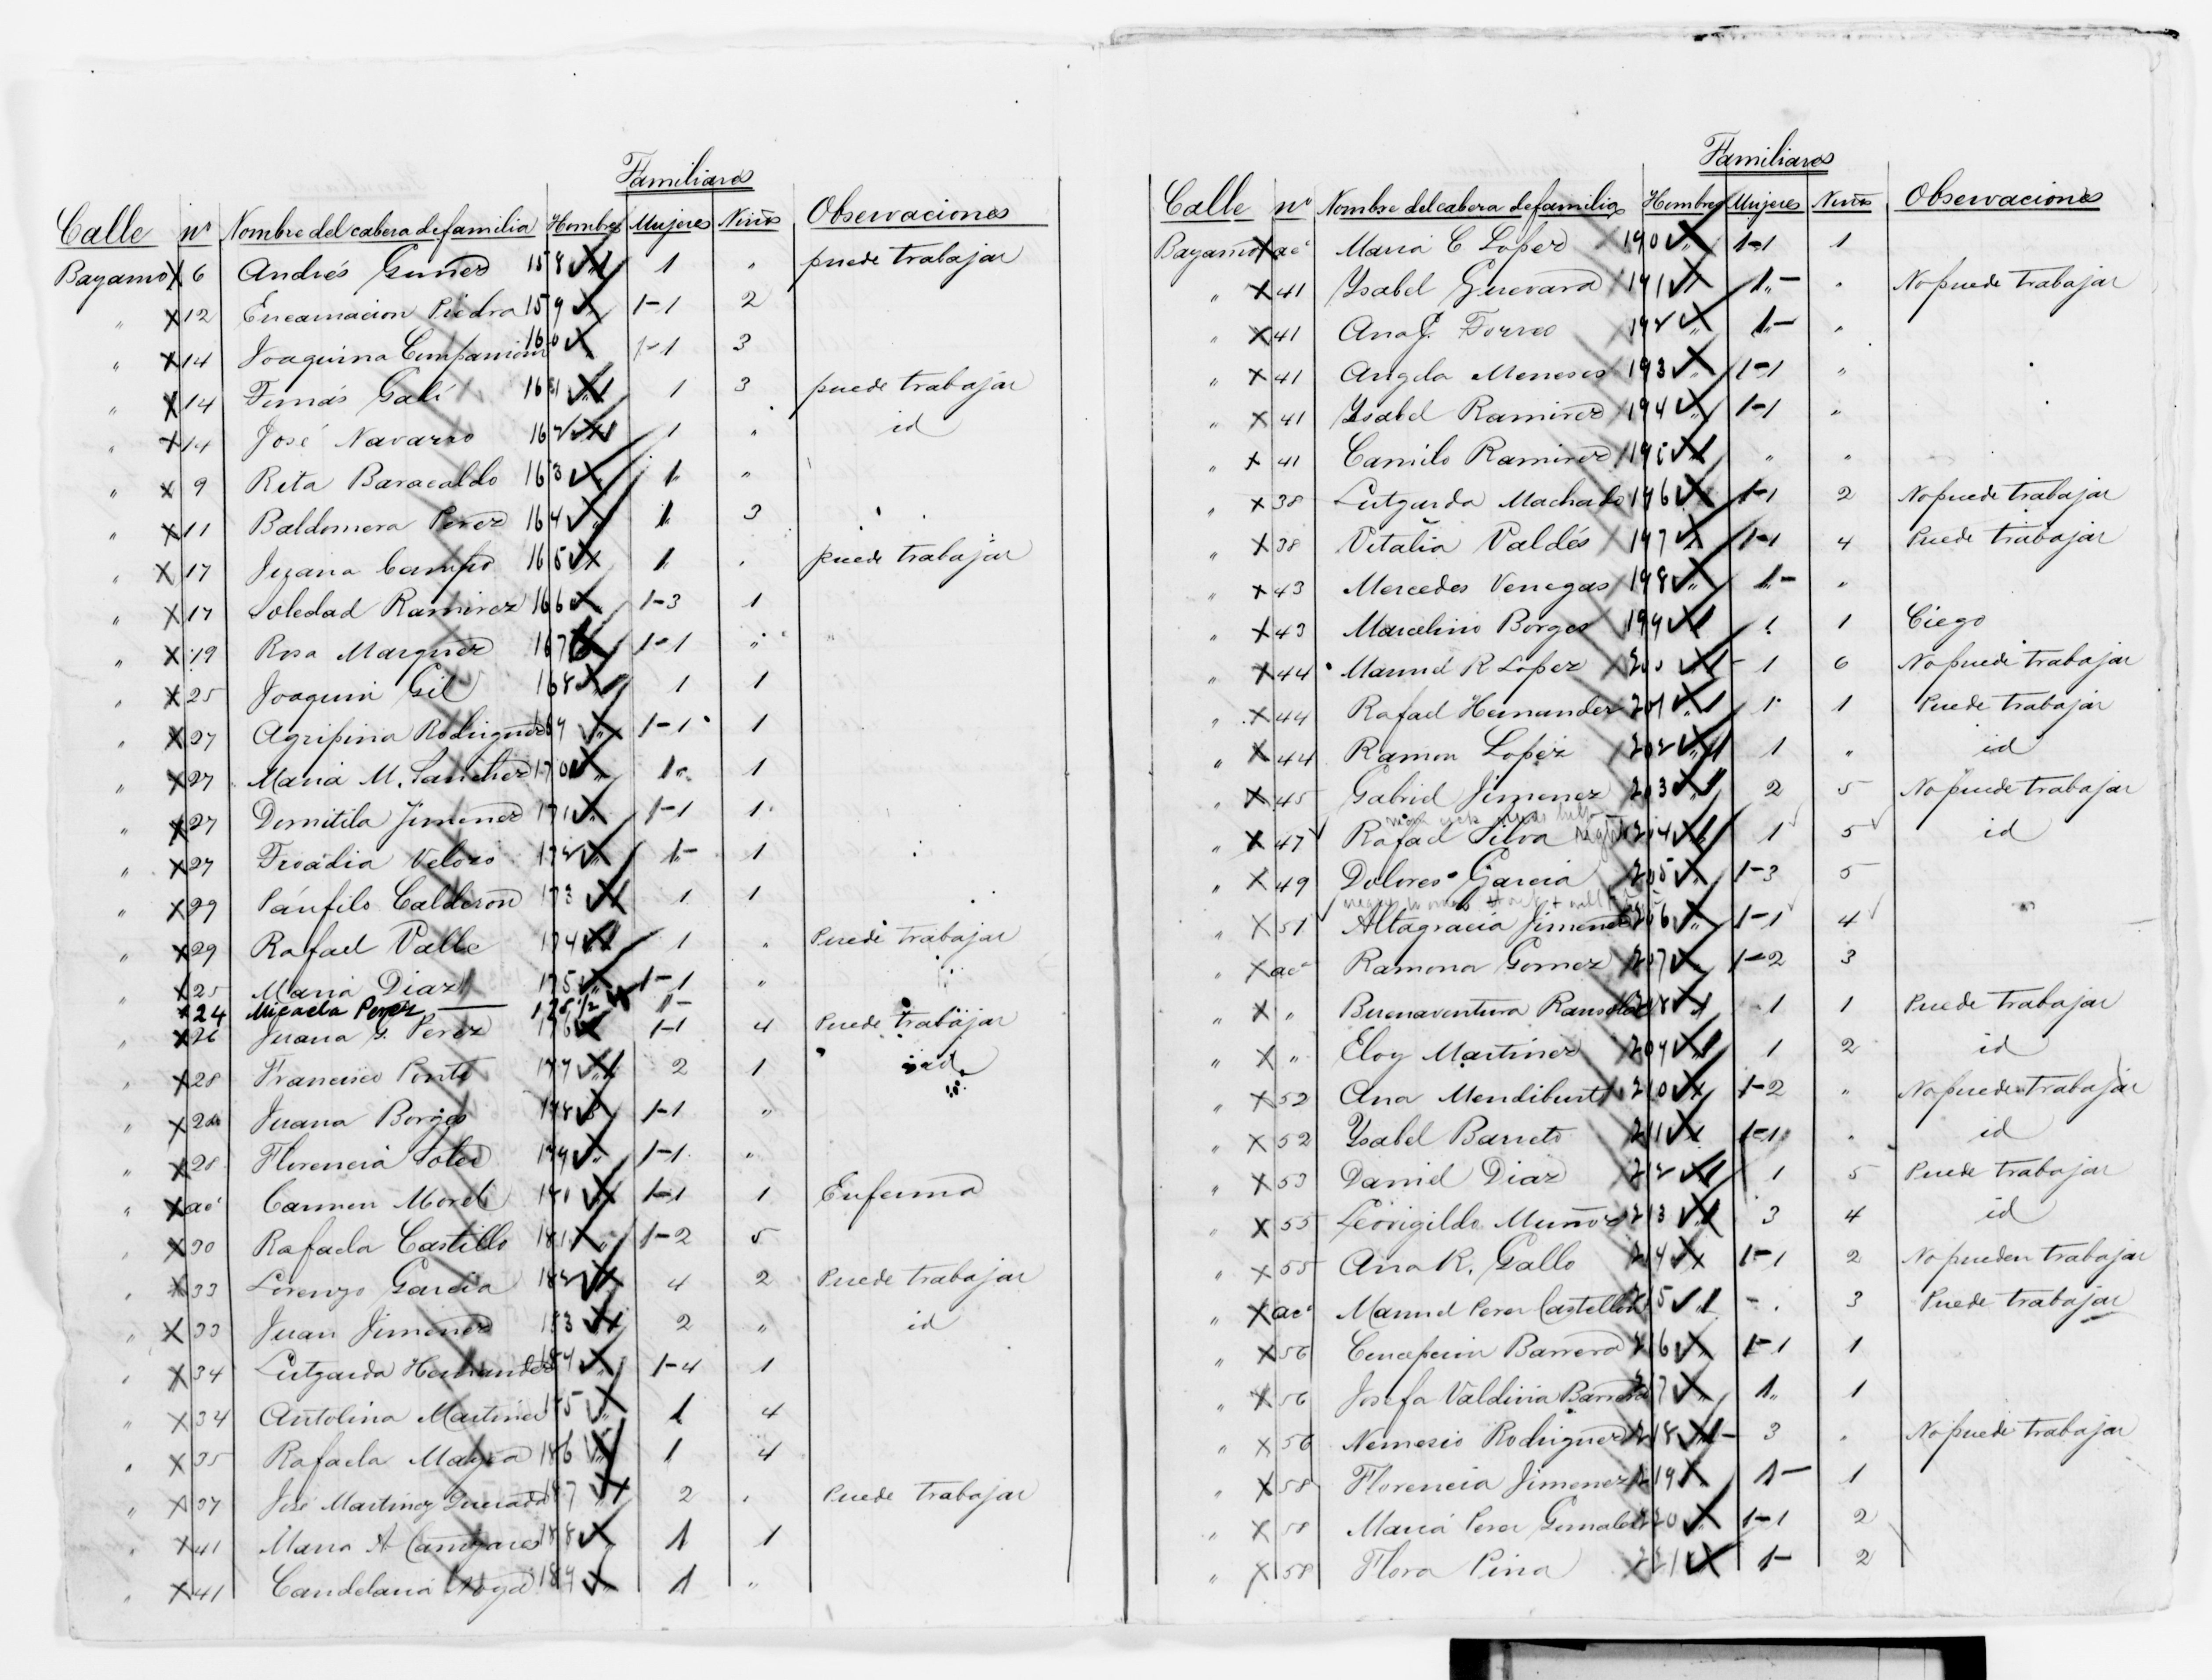 Familiares
Calle nº Nombre del cabeza de familia Hombres Mujeres Niños Observaciones
Bayamo X 6 Andrés Gumez 158 1 1 " puede trabajar
" X 12 Encarnacion Piedra 159 " 1-1 2
" X 14 Joaquina 160 " 1-1 3
" X 14 Tomás Galí 161 1 1 3 puede trabajar
" X 14 José Navarro 162 1 1 " id
" X 9 Rita Baracaldo 163 " 1 "
" X 11 Baldomera Perez 164 " 1 3
" X 17 Juana Campo 165 1 " puede trabajar
" X 17 Soledad Ramirez 166 " 1-3 1
" X 19 Rosa Marquez 167 1-1 "
" X 25 Joaquin Gil 168 1 1 1
" X 27 Agripina Rodriguez 169 " 1-1 1
" X 27 Maria M. Sanchez 170 " 1" 1
" X 27 Domitila Jimenez 171 " 1-1 1
" X 27 Troadia Veloso 172 " 1- 1
" X 29 Pánfilo Calderon 173 1 1 1
" X 29 Rafael Valle 174 1 1 " Puede trabajar
" X 25 Maria Diaz 175 " 1-1 "
X 24 Micaela Perez 175 1/2 1-
" X 26 Juana G. Perez 176 1-1 4 Puede trabajar
" X 28 Francisco Ponte 177 1 2 1 id
" X 28 Juana Borges 178 1-1 "
" X 28 Florencia Soler 179 " 1-1 "
" X acª Carmen Morel 180 1-1 1 Enferma
" X 30 Rafaela Castillo 181 " 1-2 5
" X 33 Lorenzo Garcia 182 1 4 2 Puede trabajar
" X 33 Juan Jimenez 183 1 2 " id
" X 34 Lutgarda Hernandez 184 " 1-4 1
" X 34 Antolina Martinez 185 " 1 4
" X 35 Rafaela 186 " 1 4
" X 37 José Martinez Quesada 187 1 2 " Puede trabajar
" X 41 Maria A Cañizares 188 1 1
" X 41 Candelaria 189 " 1 "
Familiares
Calle nº Nombre del cabeza de familia Hombres Mujeres Niños Observaciones
Bayamo X acª Maria C Lopez 190 " 1-1 1
" X 41 Ysabel Guevara 191 1"- " No puede trabajar
" X 41 Ana J. Torres 192 " 1"- "
" X 41 Angela Meneses 193 " 1-1 "
" X 41 Ysabel Ramirez 194 " 1-1 "
" X 41 Camilo Ramirez 195 1 " "
" X 38 Lutgarda Machado 196 " 1-1 2 No puede trabajar
" X 38 Vitalia Valdés 197 " 1-1 4 Puede trabajar
" X 43 Mercedes Venegas 198 " 1"- "
" X 43 Marcelino Borges 199 1 1 1 Ciego
" X 44 Manuel R Lopez 200 1- 1 6 No puede trabajar
" X 44 Rafael Hernandez 201 1 1 1 Puede trabajar
" X 44 Ramon Lopez 202 1 1 " id
" X 45 Gabriel Jimenez 203 1 2 5 No puede trabajar
" X 47 Rafael Silva 204 1 1 5 id
" X 49 Dolores Garcia 205 " 1-3 5
" X 51 Altagracia Jimenez 206 " 1-1 4 "
" X acª Ramona Gomez 207 1-2 3
" X " Buenaventura 208 1 1 1 Puede trabajar
" X " Eloy Martinez 209 1 1 2 id
" X 52 Ana Mendiburt 210 1-2 " No pueden trabajar
" X 52 Ysabel Barreto 211 1-1 " id
" X 53 Daniel Diaz 212 1 1 5 Puede trabajar
" X 55 Leovigildo Muñoz 213 1 3 4 id
" X 55 Ana R. Gallo 214 1-1 2 No pueden trabajar
" X acª Manuel Perez Castello 215 1 - 3 Puede trabajar
" X 56 Concepcion Barrera 216 " 1-1 1
" X 56 Josefa Valdivia Barrera 217 " 1" 1
" X 56 Nemesio Rodriguez 218 1- 3 " No puede trabajar
" X 58 Florencia Jimenez 219 1- 1
" X 58 Maria Perez Gonzalez 220 " 1-1 2
" X 58 Flora Pina 221 1- 2